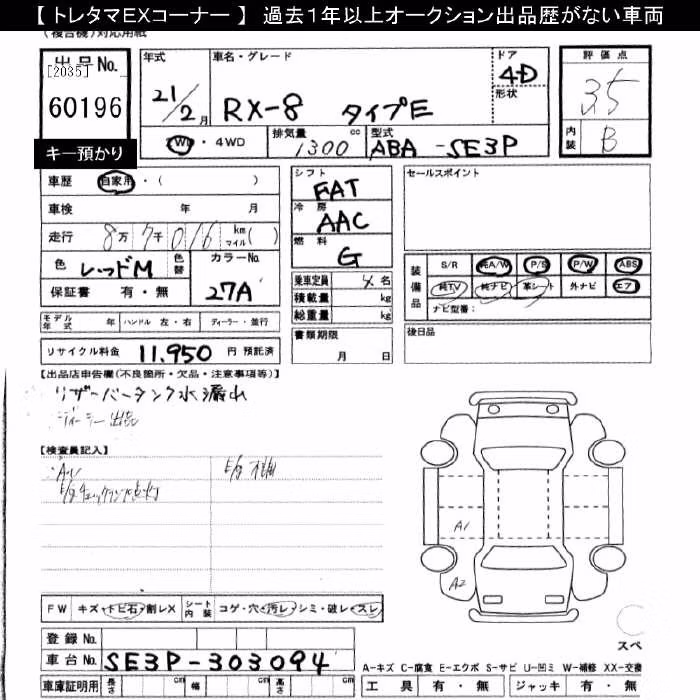 【 トレタマEXコーナー 】 過去1年以上オークション出品歴がない車両
(複合機)対応用紙
出品No. [2035] 60196
キー預かり
年式 21/2月
車名・グレード RX-8 タイプE
ドア 4D
形状
評価点 3.5
内装 B
2WD・4WD
排気量 1300 cc
型式 ABA-SE3P
車歴 自家用・( )
車検 年 月
走行 8万7千016 km マイル( )
色 レッドM 色替
カラーNo. 27A
保証書 有・無
シフト FAT
冷房 AAC
燃料 G
乗車定員 4名
積載量 kg
総重量 kg
書類期限
月 日
セールスポイント
装備品
S/R 純A/W P/S P/W ABS
純TV 純ナビ 革シート 外ナビ エアB
ナビ型番:
後日品
モデル年式 年 ハンドル 左・右 ディーラー・並行
リサイクル料金 11,950 円 預託済
【出品店申告欄(不良箇所・欠品・注意事項等)】
リザーバータンク水漏れ
【検査員記入】
E/gチェックランプ点灯
A1
A2
FW キズ・トビ石・割レX シート内装 コゲ・穴・汚レ・シミ・破レ・スレ
登録No.
車台No. SE3P-303094
車庫証明用 長さ cm 幅 cm 高さ cm
スペ
A-キズ C-腐食 E-エクボ S-サビ U-凹ミ W-補修 XX-交換
工具 有・無 ジャッキ 有・無